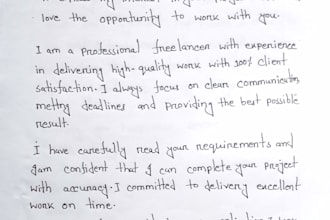 love the opportunity to work with you.
I am a professional freelancer with experience
in delivering high-quality work with 100% client
satisfaction. I always focus on clear communication
metting deadlines and providing the best possible
result.
I have carefully read your requirements and
I am confident that I can complete your project
with accuracy. I committed to delivery excellent
work on time.